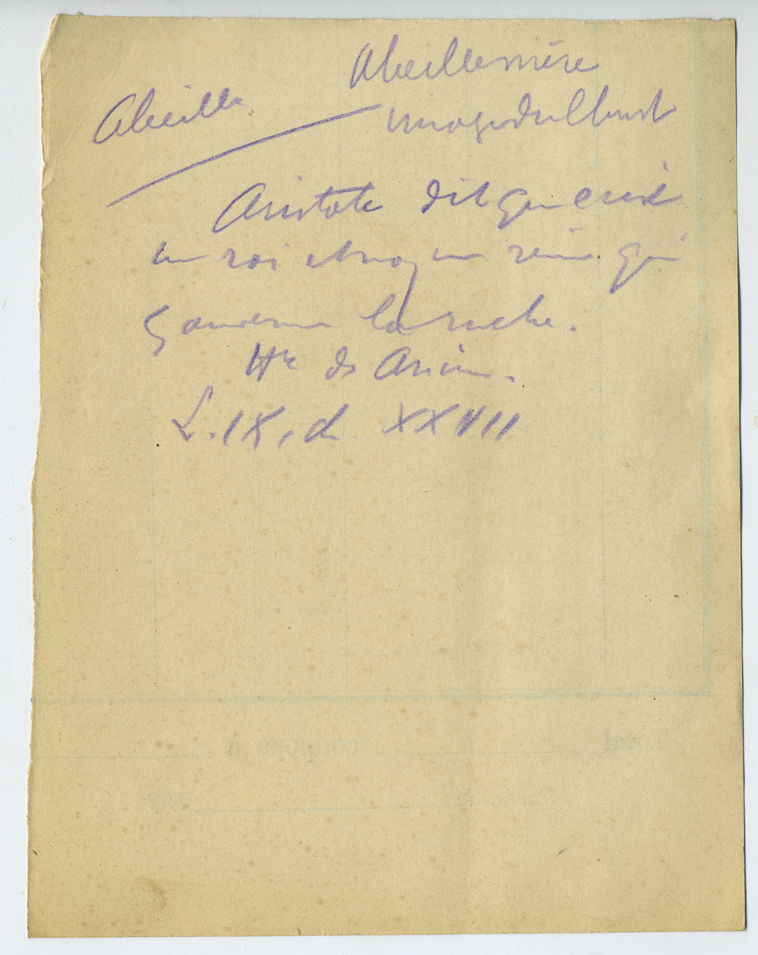 Abeille mère
Abeille
Aristote dit que c'est
un roi et non une reine qui
gouverne la ruche.
Hre des Anim.
L. IX, ch XXVII